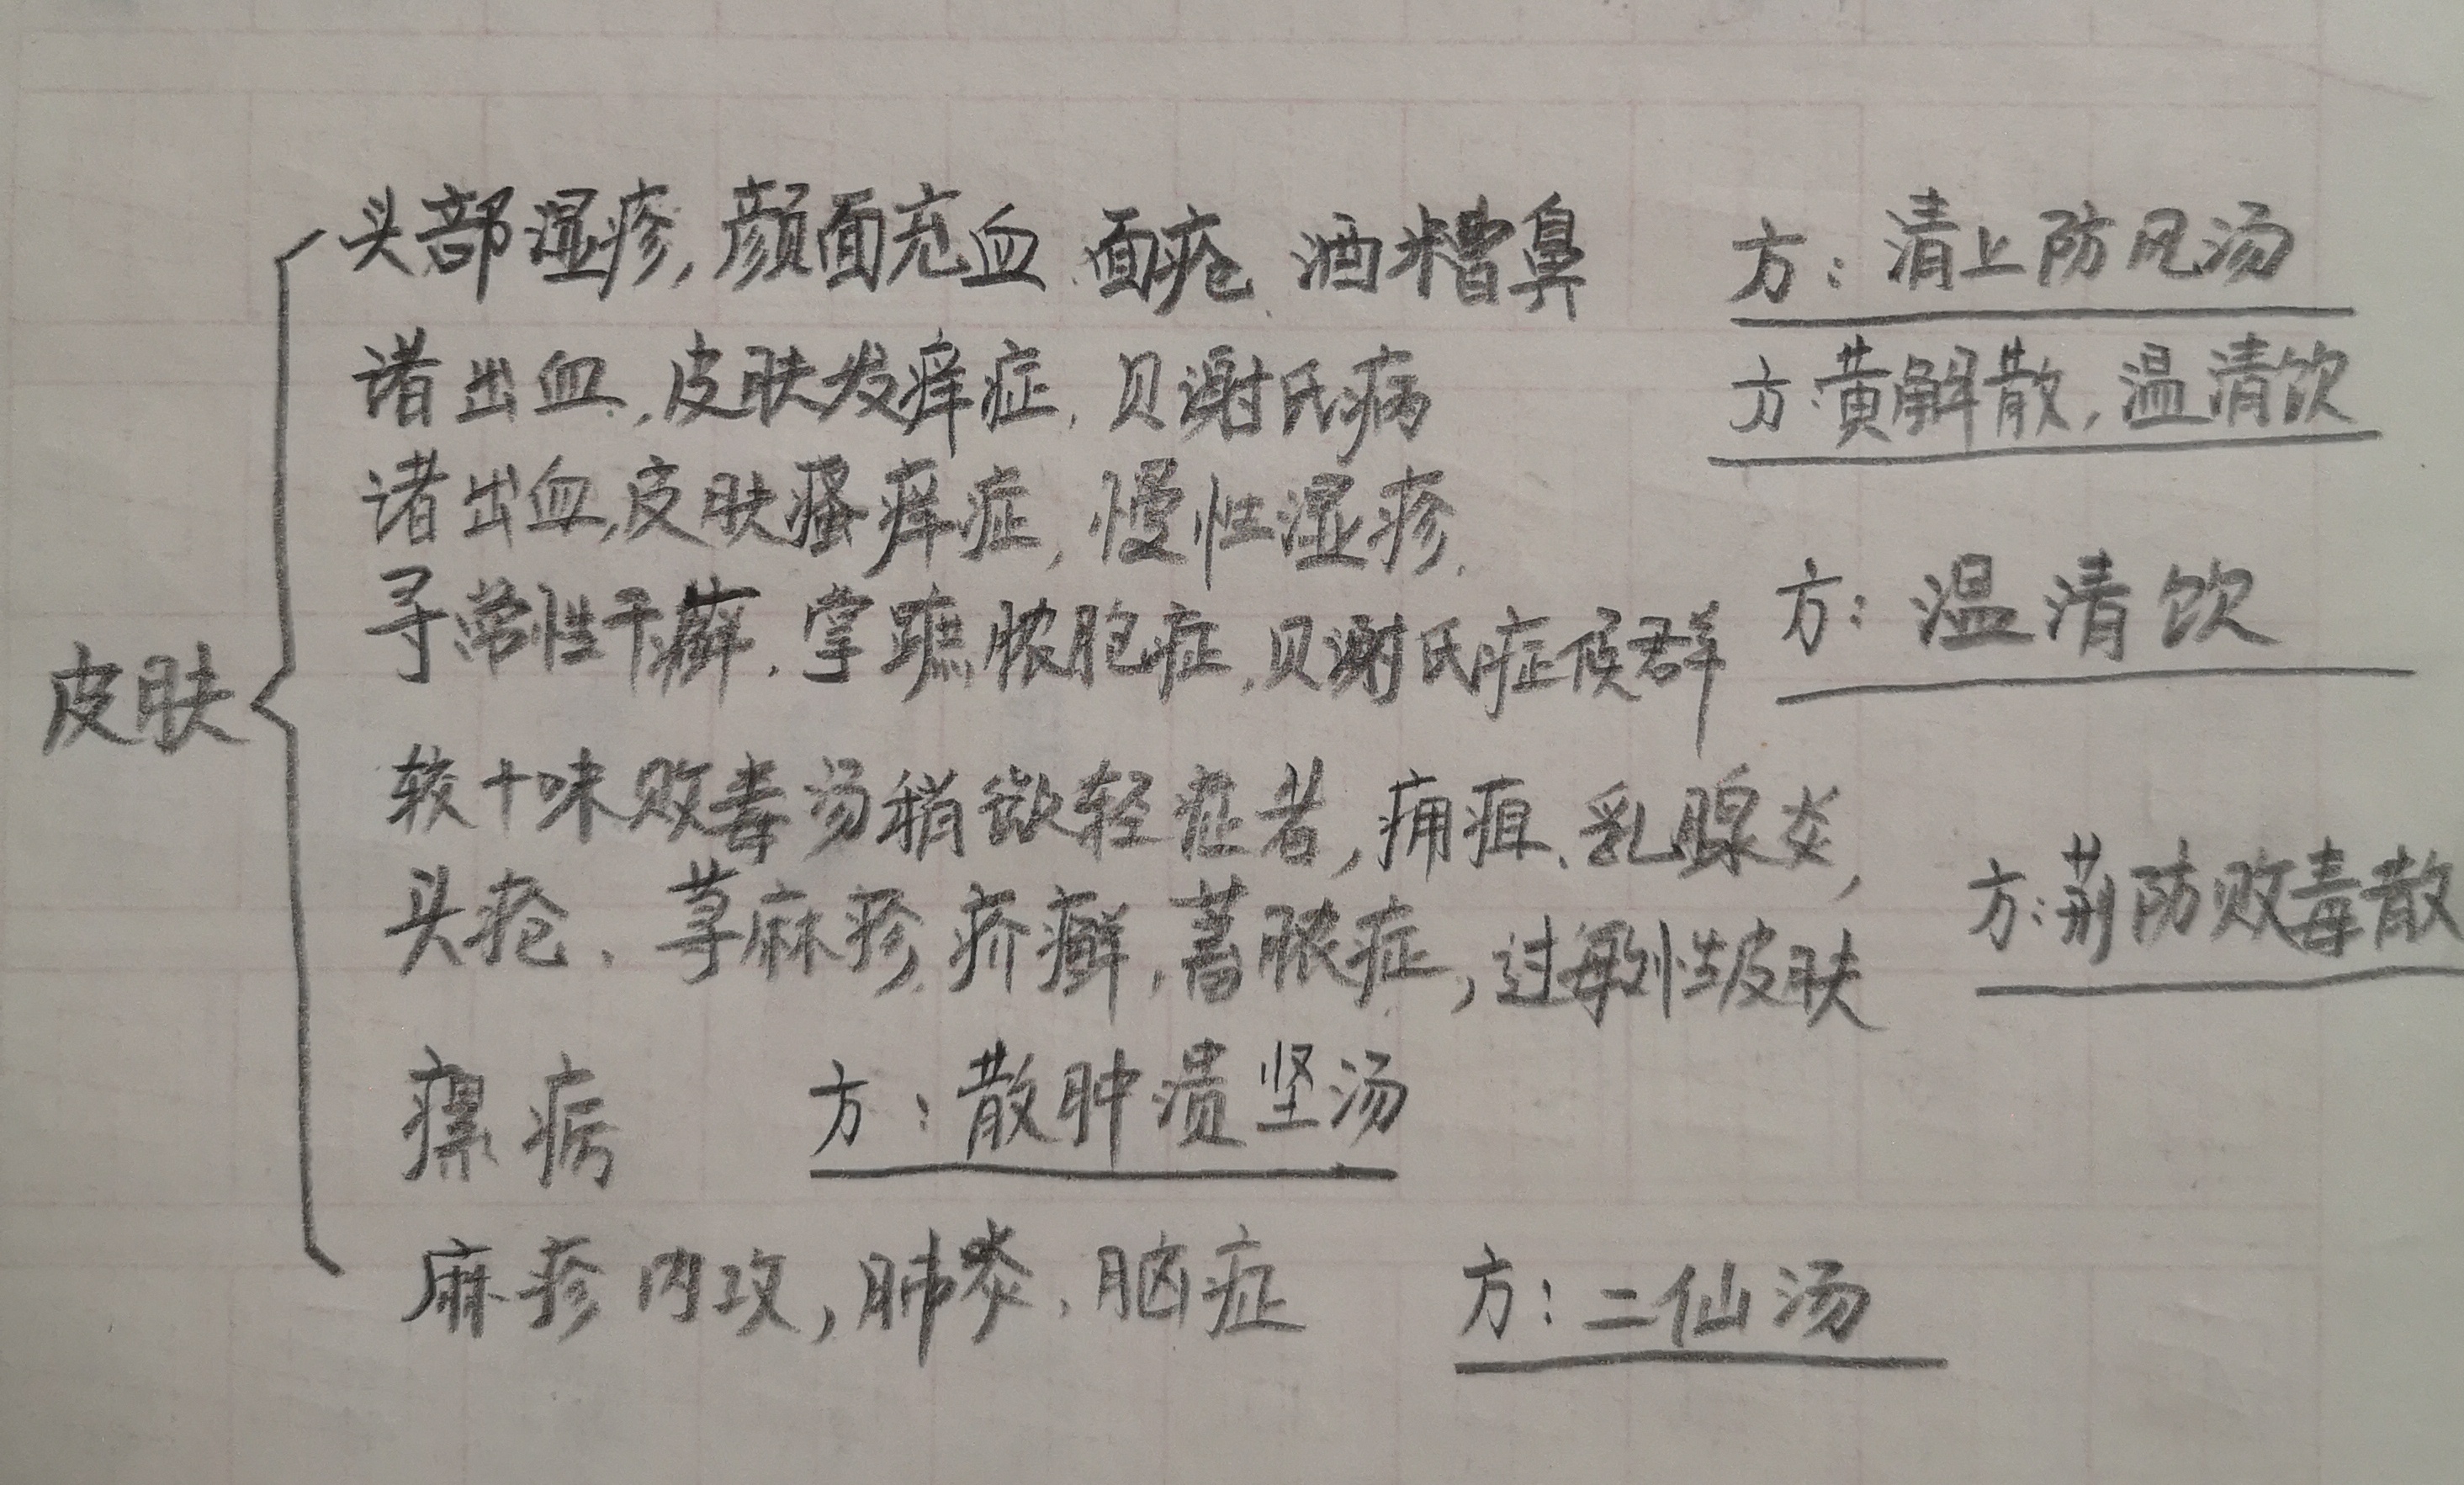 头部湿疹,颜面充血、面疮、酒糟鼻 方:清上防风汤
诸出血,皮肤发痒症,贝谢氏病 方:黄解散,温清饮
诸出血,皮肤瘙痒症,慢性湿疹,
寻常性干癣,掌蹠脓胞症,贝谢氏症候群 方:温清饮
皮肤
较十味败毒汤稍微轻症者,痈疽、乳腺炎,
头疮、荨麻疹,疥癣,蓄脓症,过敏性皮肤 方:荆防败毒散
瘰疬 方:散肿溃坚汤
麻疹内攻,肺炎,脑症 方:二仙汤